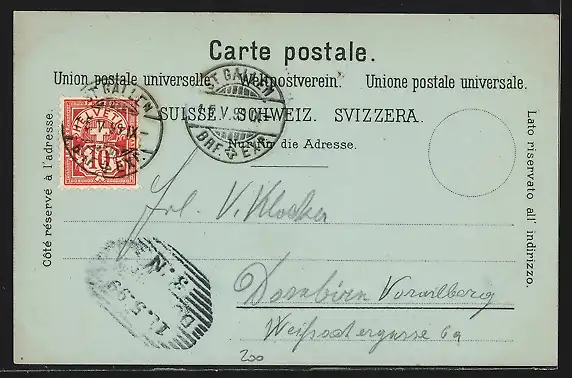 Carte postale.
Union postale universelle. Weltpostverein. Unione postale universale.
SUISSE. SCHWEIZ. SVIZZERA.
Nur für die Adresse.
Côté réservé à l'adresse.
Lato riservato all' indirizzo.
HELVETIA
10
ST. GALLEN
BRF. EXP.
ST. GALLEN
V. 99
BRF. EXP.
Frl. V. Klocker
Dornbirn Vorarlberg
6a
11.5.99
3. N
200